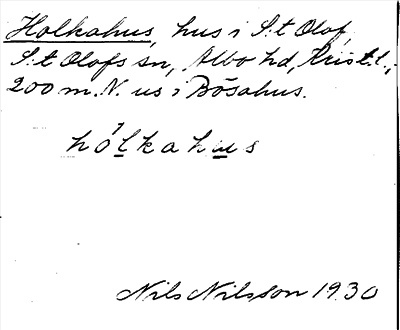 Holkahus, hus i S:t Olof,
S:t Olofs sn, Albo hd, Krist. l.;
200 m. N. us i Bösahus.
hólkahus
Nils Nilsson 1930